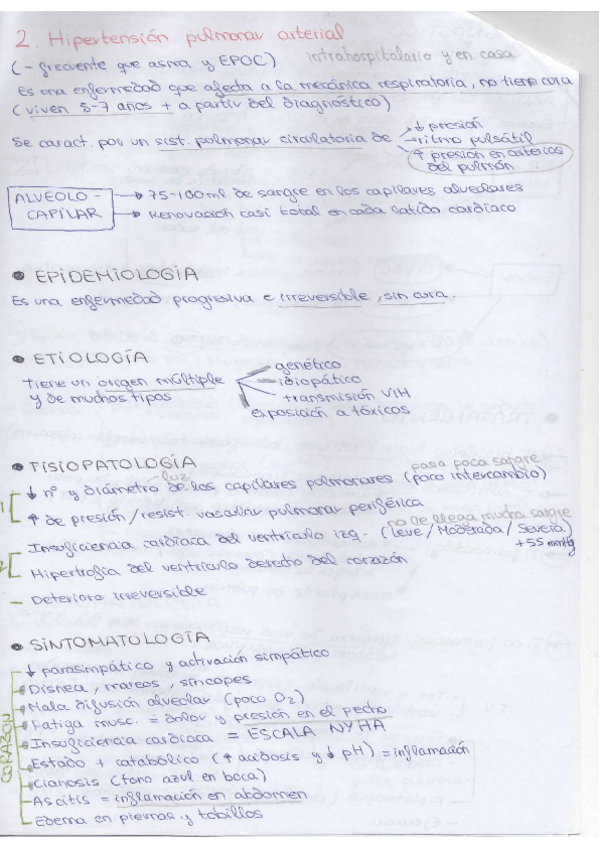 2. Hipertensión pulmonar arterial
(- frecuente que asma y EPOC) intrahospitalario y en casa
Es una enfermedad que afecta a la mecánica respiratoria, no tiene cura
(viven 5-7 años + a partir del diagnóstico)
Se caract. por un sist. pulmonar circulatoria de → ↓ presión
→ ritmo pulsátil
→ ↑ presión en arterias del pulmón
ALVEOLO-CAPILAR → 75-100 ml de sangre en los capilares alveolares
→ Renovación casi total en cada latido cardíaco
• EPIDEMIOLOGÍA
Es una enfermedad progresiva e irreversible, sin cura.
• ETIOLOGÍA
genético
Tiene un origen múltiple idiopático
y de muchos tipos transmisión VIH
exposición a tóxicos
• FISIOPATOLOGÍA
luz pasa poca sangre
1 ↓ nº y diámetro de los capilares pulmonares (poco intercambio)
↑ de presión/resist vascular pulmonar periférica
no le llega mucha sangre
2 Insuficiencia cardíaca del ventrículo izq. (Leve/Moderada/Severa)
+55 mmHg
Hipertrofia del ventrículo derecho del corazón
- Deterioro irreversible
• SINTOMATOLOGÍA
↓ parasimpático y activación simpático
CORAZÓN
Disnea, mareos, síncopes
Mala difusión alveolar (poco O2)
Fatiga musc. = dolor y presión en el pecho
Insuficiencia cardíaca = ESCALA NYHA
Estado + catabólico (↑ acidosis y ↓ pH) = inflamación
Cianosis (tono azul en boca)
Ascitis = inflamación en abdomen
Edema en piernas y tobillos